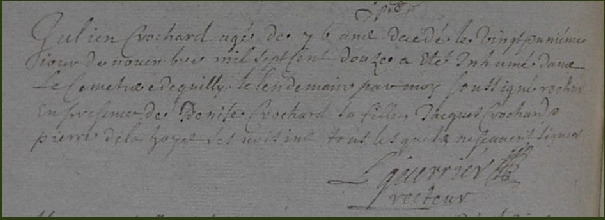 Julien Crochard agé de 76 ans decedé le vingt uniéme
jour de novembre mil sept cent douze a eté Inhumé dans
le Cemetiere de quilly le lendemain par moy soussigné recteur
En presence de Denise Crochard sa fille, Jacques Crochard
pierre de la haye ses voisins tous lesquels ne scavent signer
L guerrier
recteur